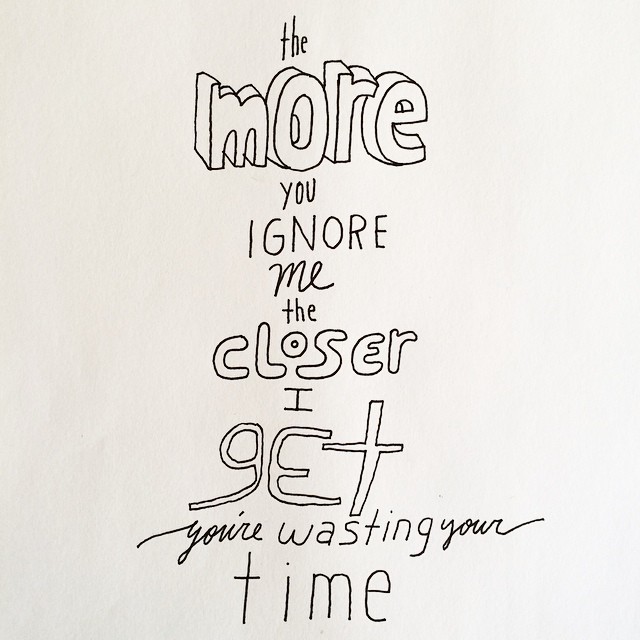 the
more
you
IGNORE
me
the
closer
I
get
you're wasting your
time